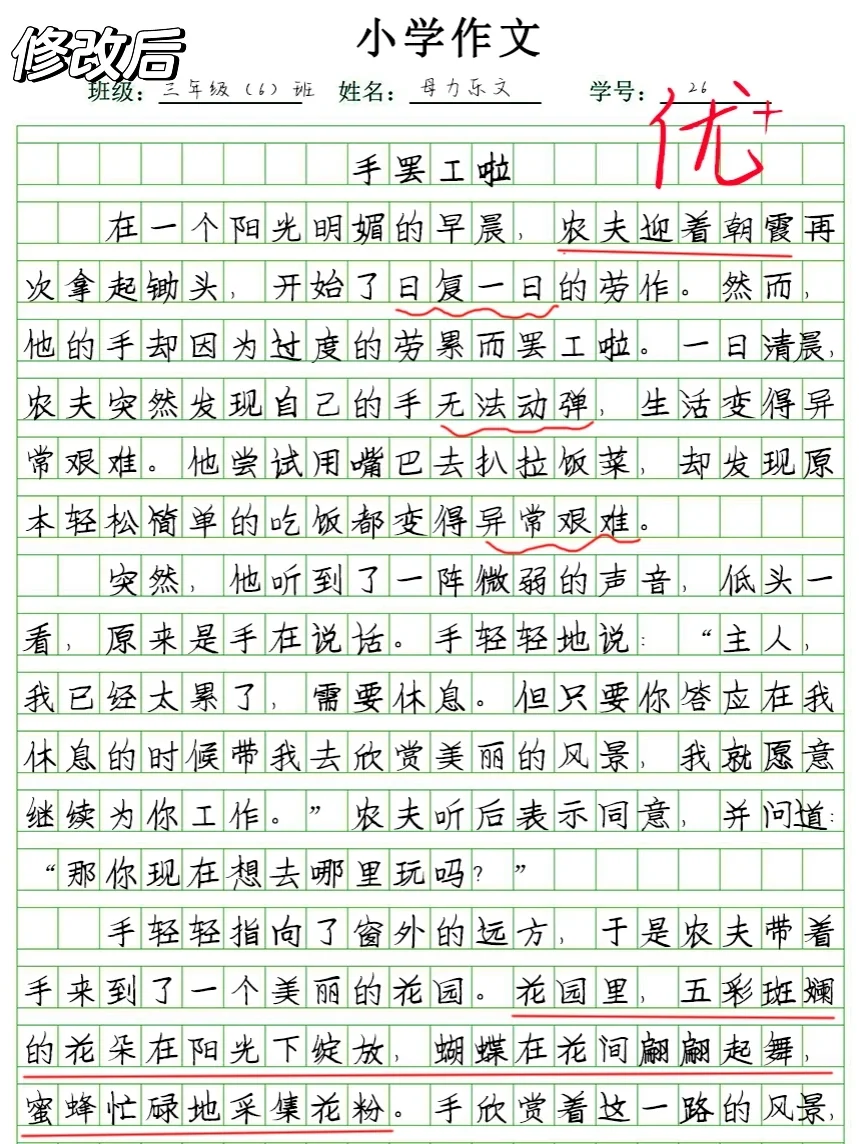 修改后
小学作文
班级：三年级（6）班 姓名：母力乐文 学号：26
优+
手罢工啦
在一个阳光明媚的早晨，农夫迎着朝霞再
次拿起锄头，开始了日复一日的劳作。然而，
他的手却因为过度的劳累而罢工啦。一日清晨，
农夫突然发现自己的手无法动弹，生活变得异
常艰难。他尝试用嘴巴去扒拉饭菜，却发现原
本轻松简单的吃饭都变得异常艰难。
突然，他听到了一阵微弱的声音，低头一
看，原来是手在说话。手轻轻地说：“主人，
我已经太累了，需要休息。但只要你答应在我
休息的时候带我去欣赏美丽的风景，我就愿意
继续为你工作。”农夫听后表示同意，并问道：
“那你现在想去哪里玩吗？”
手轻轻指向了窗外的远方，于是农夫带着
手来到了一个美丽的花园。花园里，五彩斑斓
的花朵在阳光下绽放，蝴蝶在花间翩翩起舞，
蜜蜂忙碌地采集花粉。手欣赏着这一路的风景，